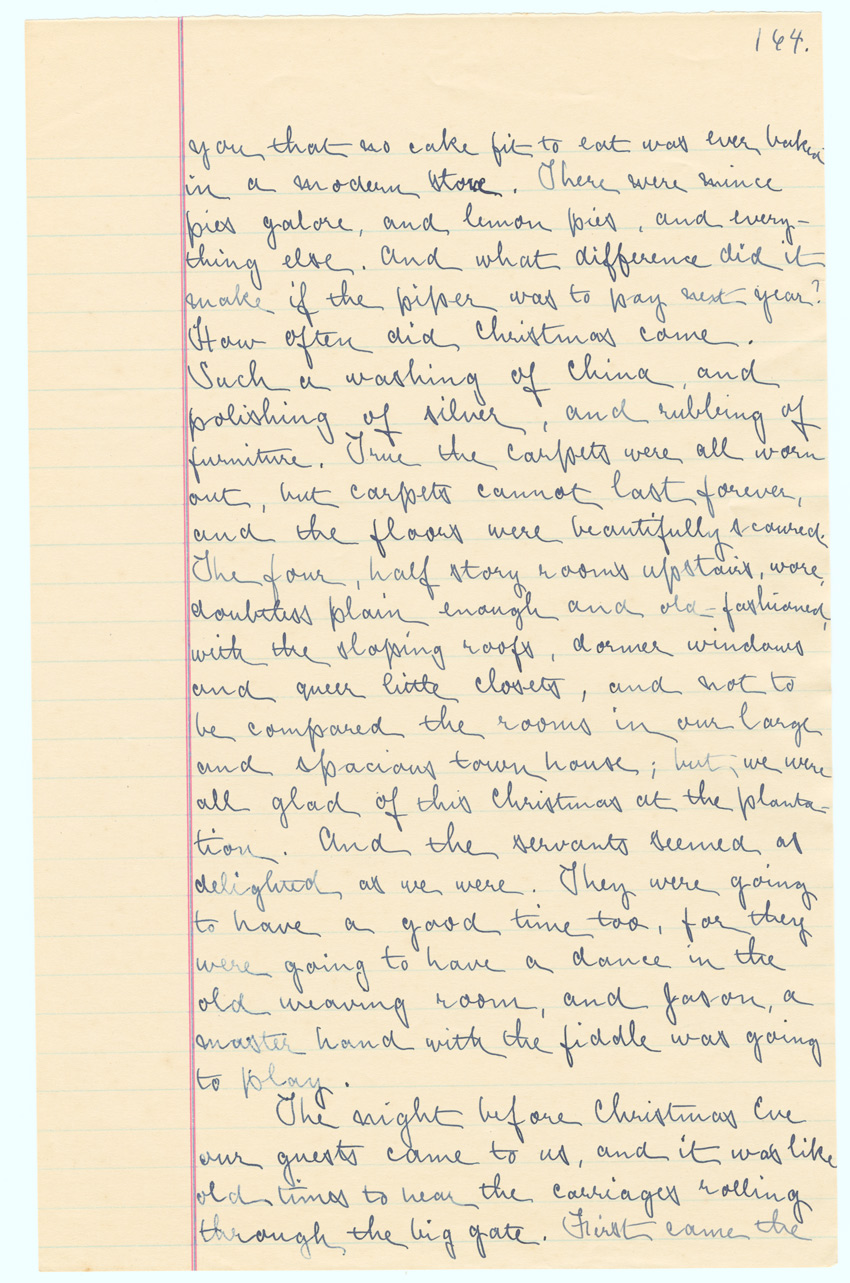 164.
you that no cake fit to eat was ever baked
in a modern stove. There were mince
pies galore, and lemon pies, and every-
thing else. And what difference did it
make if the piper was to pay next year?
How often did Christmas come.
Such a washing of China, and
polishing of silver, and rubbing of
furniture. True the carpets were all worn
out, but carpets cannot last forever,
and the floors were beautifully scoured.
The four, half story rooms upstairs, were,
doubtless plain enough and old-fashioned,
with the sloping roofs, dormer windows
and queer little closets, and not to
be compared the rooms in our large
and spacious town house; but, we were
all glad of this Christmas at the planta-
tion. And the servants seemed as
delighted as we were. They were going
to have a good time too, for they
were going to have a dance in the
old weaving room, and Jason, a
master hand with the fiddle was going
to play.
The night before Christmas Eve
our guests came to us, and it was like
old times to hear the carriages rolling
through the big gate. First came the